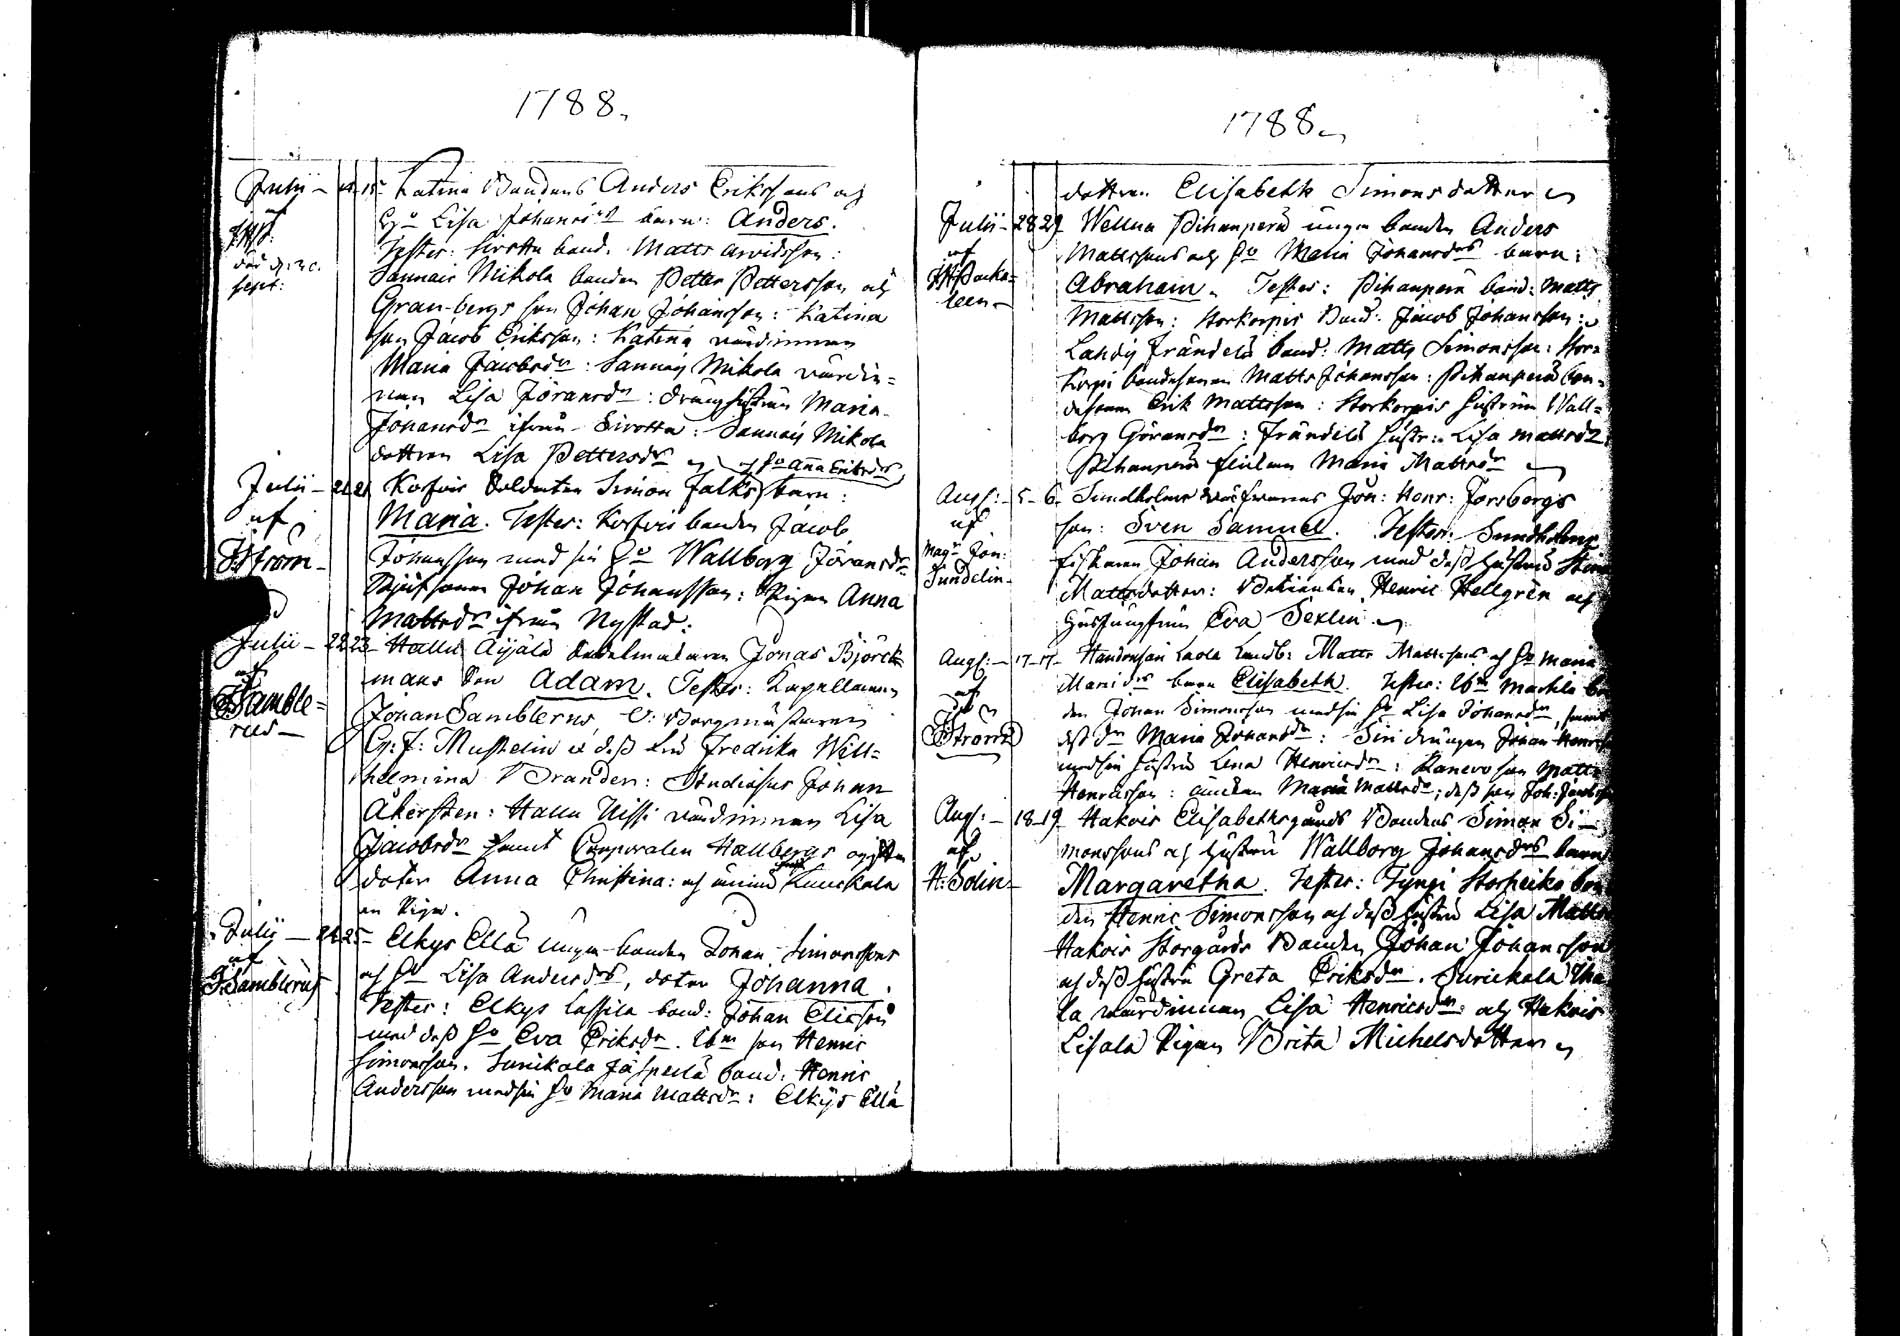 1788.
Julii - 14 15 Katina Bondens Anders Erikssons och
Hu Lisa Johansdr barn: Anders.
Testes: Sirotta bond. Matts Arvidsson:
Sannais Mikola bonden Petter Pettersson och
Granbergs son Johan Johansson: Katina
son Jacob Eriksson: Katina värdinnan
Maria Jacobsdr: Sannais Mikola värdin=
nan Lisa Jöransdr: dränghustrun Maria
Johansdr ifrån Sirotta: Sannais Mikola
dottren Lisa Pettersdr
och Hu Anna Eriksdr
Julii - 21 21 Korfvis Soldaten Simon Falks barn:
af
Ström
Maria. Testes: Korfvis bonden Jacob
Johansson med sin Hu Wallborg Jöransdr
Johan Johansson: Pigan Anna
Mattsdr ifrån Nystad:
Julii - 22 23 Hallu Äijälä Sadelmakaren Jonas Björck=
af
Samble=
rus
mans Son Adam. Testes: Kapellanen
Johan Samblerus, V: Borgmästaren
Mustelin och dess fru Fredrika Will=
helmina Brander: Studiosus Johan
Åkersten: Hallu Nissi värdinnan Lisa
Jacobsdr samt Corporalen Hallbergs
doter Anna Christina: och Kauskala
en Piga.
Julii - 24 25 Elkys Ellä unga bonden Johan Simonssons
af
J: Samblerus
och Hu Lisa Andersdrs, doter Johanna.
Testes: Elkys Lassila bond: Johan Ericson
med dess Hu Eva Eriksdr. Ibm son Henric
Simonsson. Sunikala Jäsperlä bond: Henric
Andersson med sin Hu Maria Mattsdr: Elkys Ellä
1788.
dottren Elisabeth Simonsdotter
Julii - 28 29 Wellua Pihanperä unga bonden Anders
af
Packa=
leen
Mattssons och Hu Maria Johansdrs barn:
Abraham. Testes: Pihanperä bond: Matts
Mattsson: Storkorpis Bond: Jacob Johansson:
Lahdis Frändilä bond: Matts Simonsson: Stor=
korpi bondesonen Matts Johansson: Pihanperä bon=
desonen Erik Mattsson: Storkorpis hustrun Wall=
borg Göransdr: Frändilä hustr: Lisa Mattsdr
Pihanperä flickan Maria Mattsdr
Aug: - 5 - 6 Sundholms Joh: Henr: Forsbergs
af
Magr Joh:
Sundelin
son: Sven Samuel. Testes: Sundholms
fiskaren Johan Andersson med dess hustru Stina
Mattsdotter: Betienten Henric Hellgren och
Husjungfrun Eva Sexlin
Aug: - 17 - 17 Laola Landb: Matts Mattssons och Hu Maria
af
Ström
barn Elisabeth. Testes: Ibm Markla bon
den Johan Simonsson med sin Hu Lisa Johansdr, samt
dess dr Maria Johansdr: Siri drängen Johan Henrics
med sin hustru Lena Henricsdr: Ranevo son Matts
Henricsson: änckan Maria Mattsdr; dess son Joh: Jacobss
Aug: - 18 19 Hakois Elisabethsgårds Bondens Simon Si=
af
H: Solin
monssons och hustru Wallborg Johansdrs barn
Margaretha. Testes: Tyngi Storheiko bon
den Henric Simonsson och dess hustru Lisa Matts
Hakois Storgårds Bonden Johan Johansson
och dess hustru Greta Eriksdr. Surickala
la värdinnan Lisa Henricsdr: och Hakois
Lisala Pigan Brita Michelsdotter